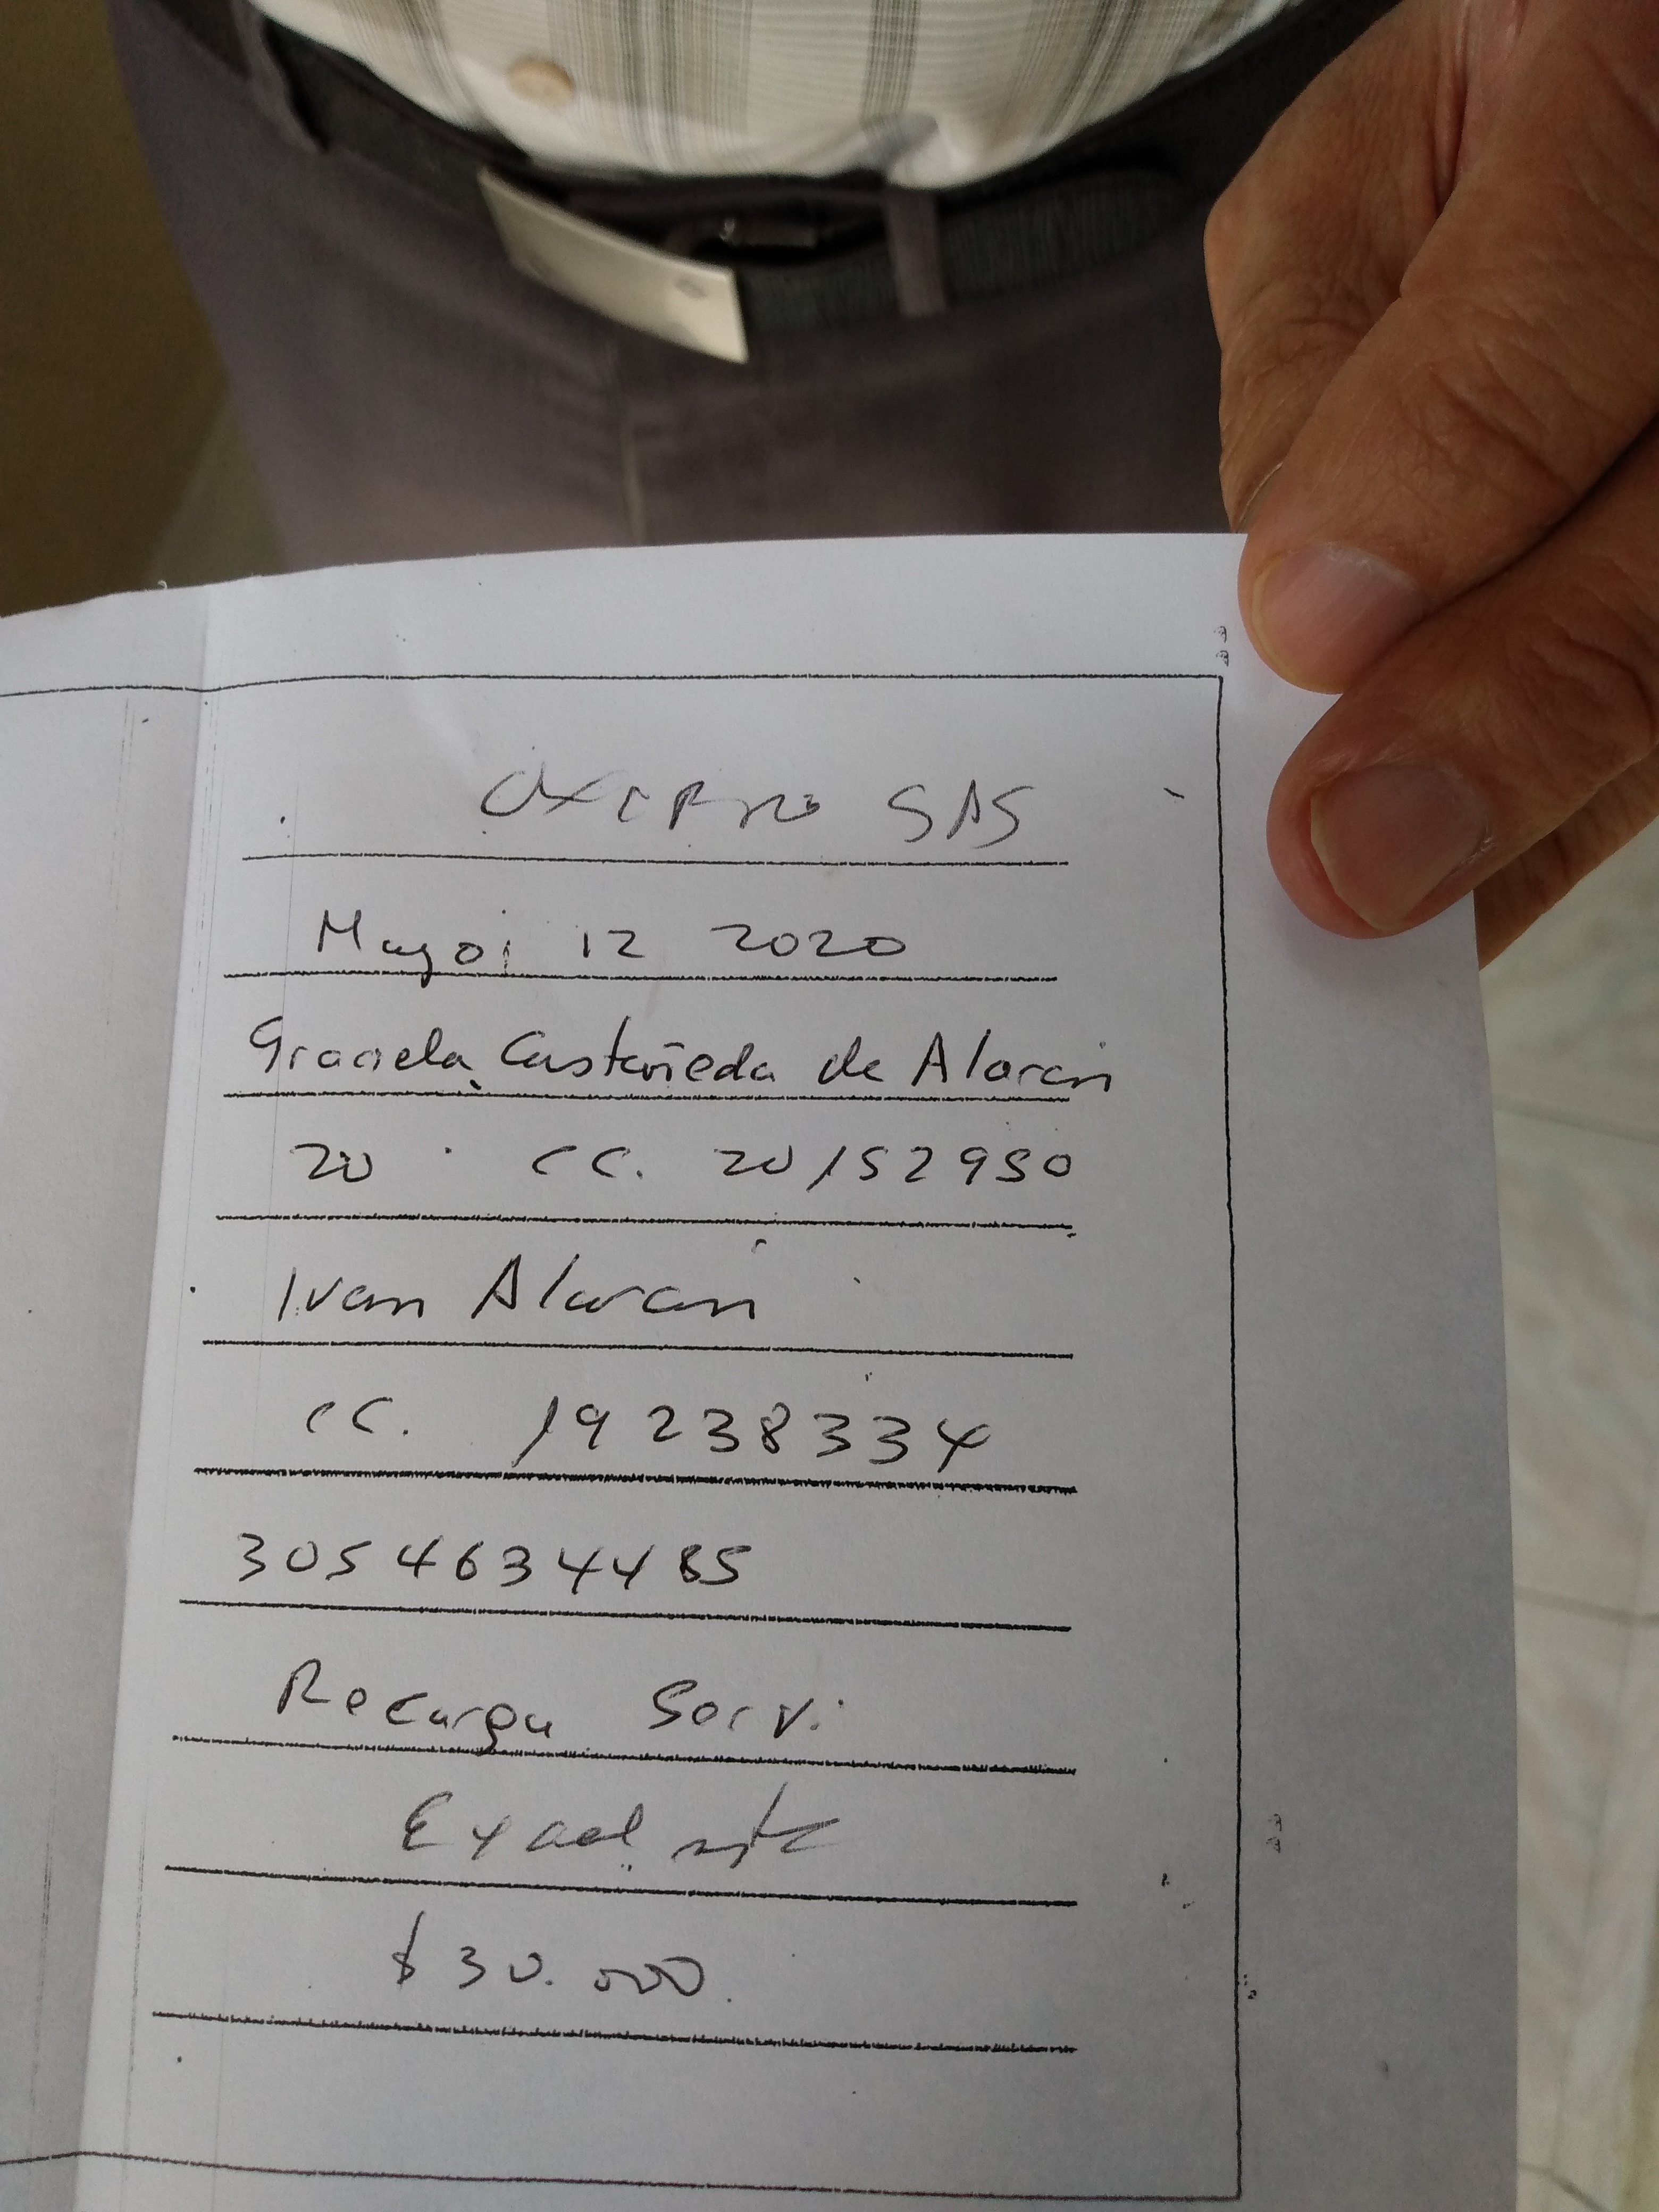 Oxipro SAS
Mayo 12 2020
Graciela Castañeda de Alarcón
20 CC. 20152950
Ivan Alarcon
CC. 19238334
3054634485
Recarga Serv.
Excelente
$30.000